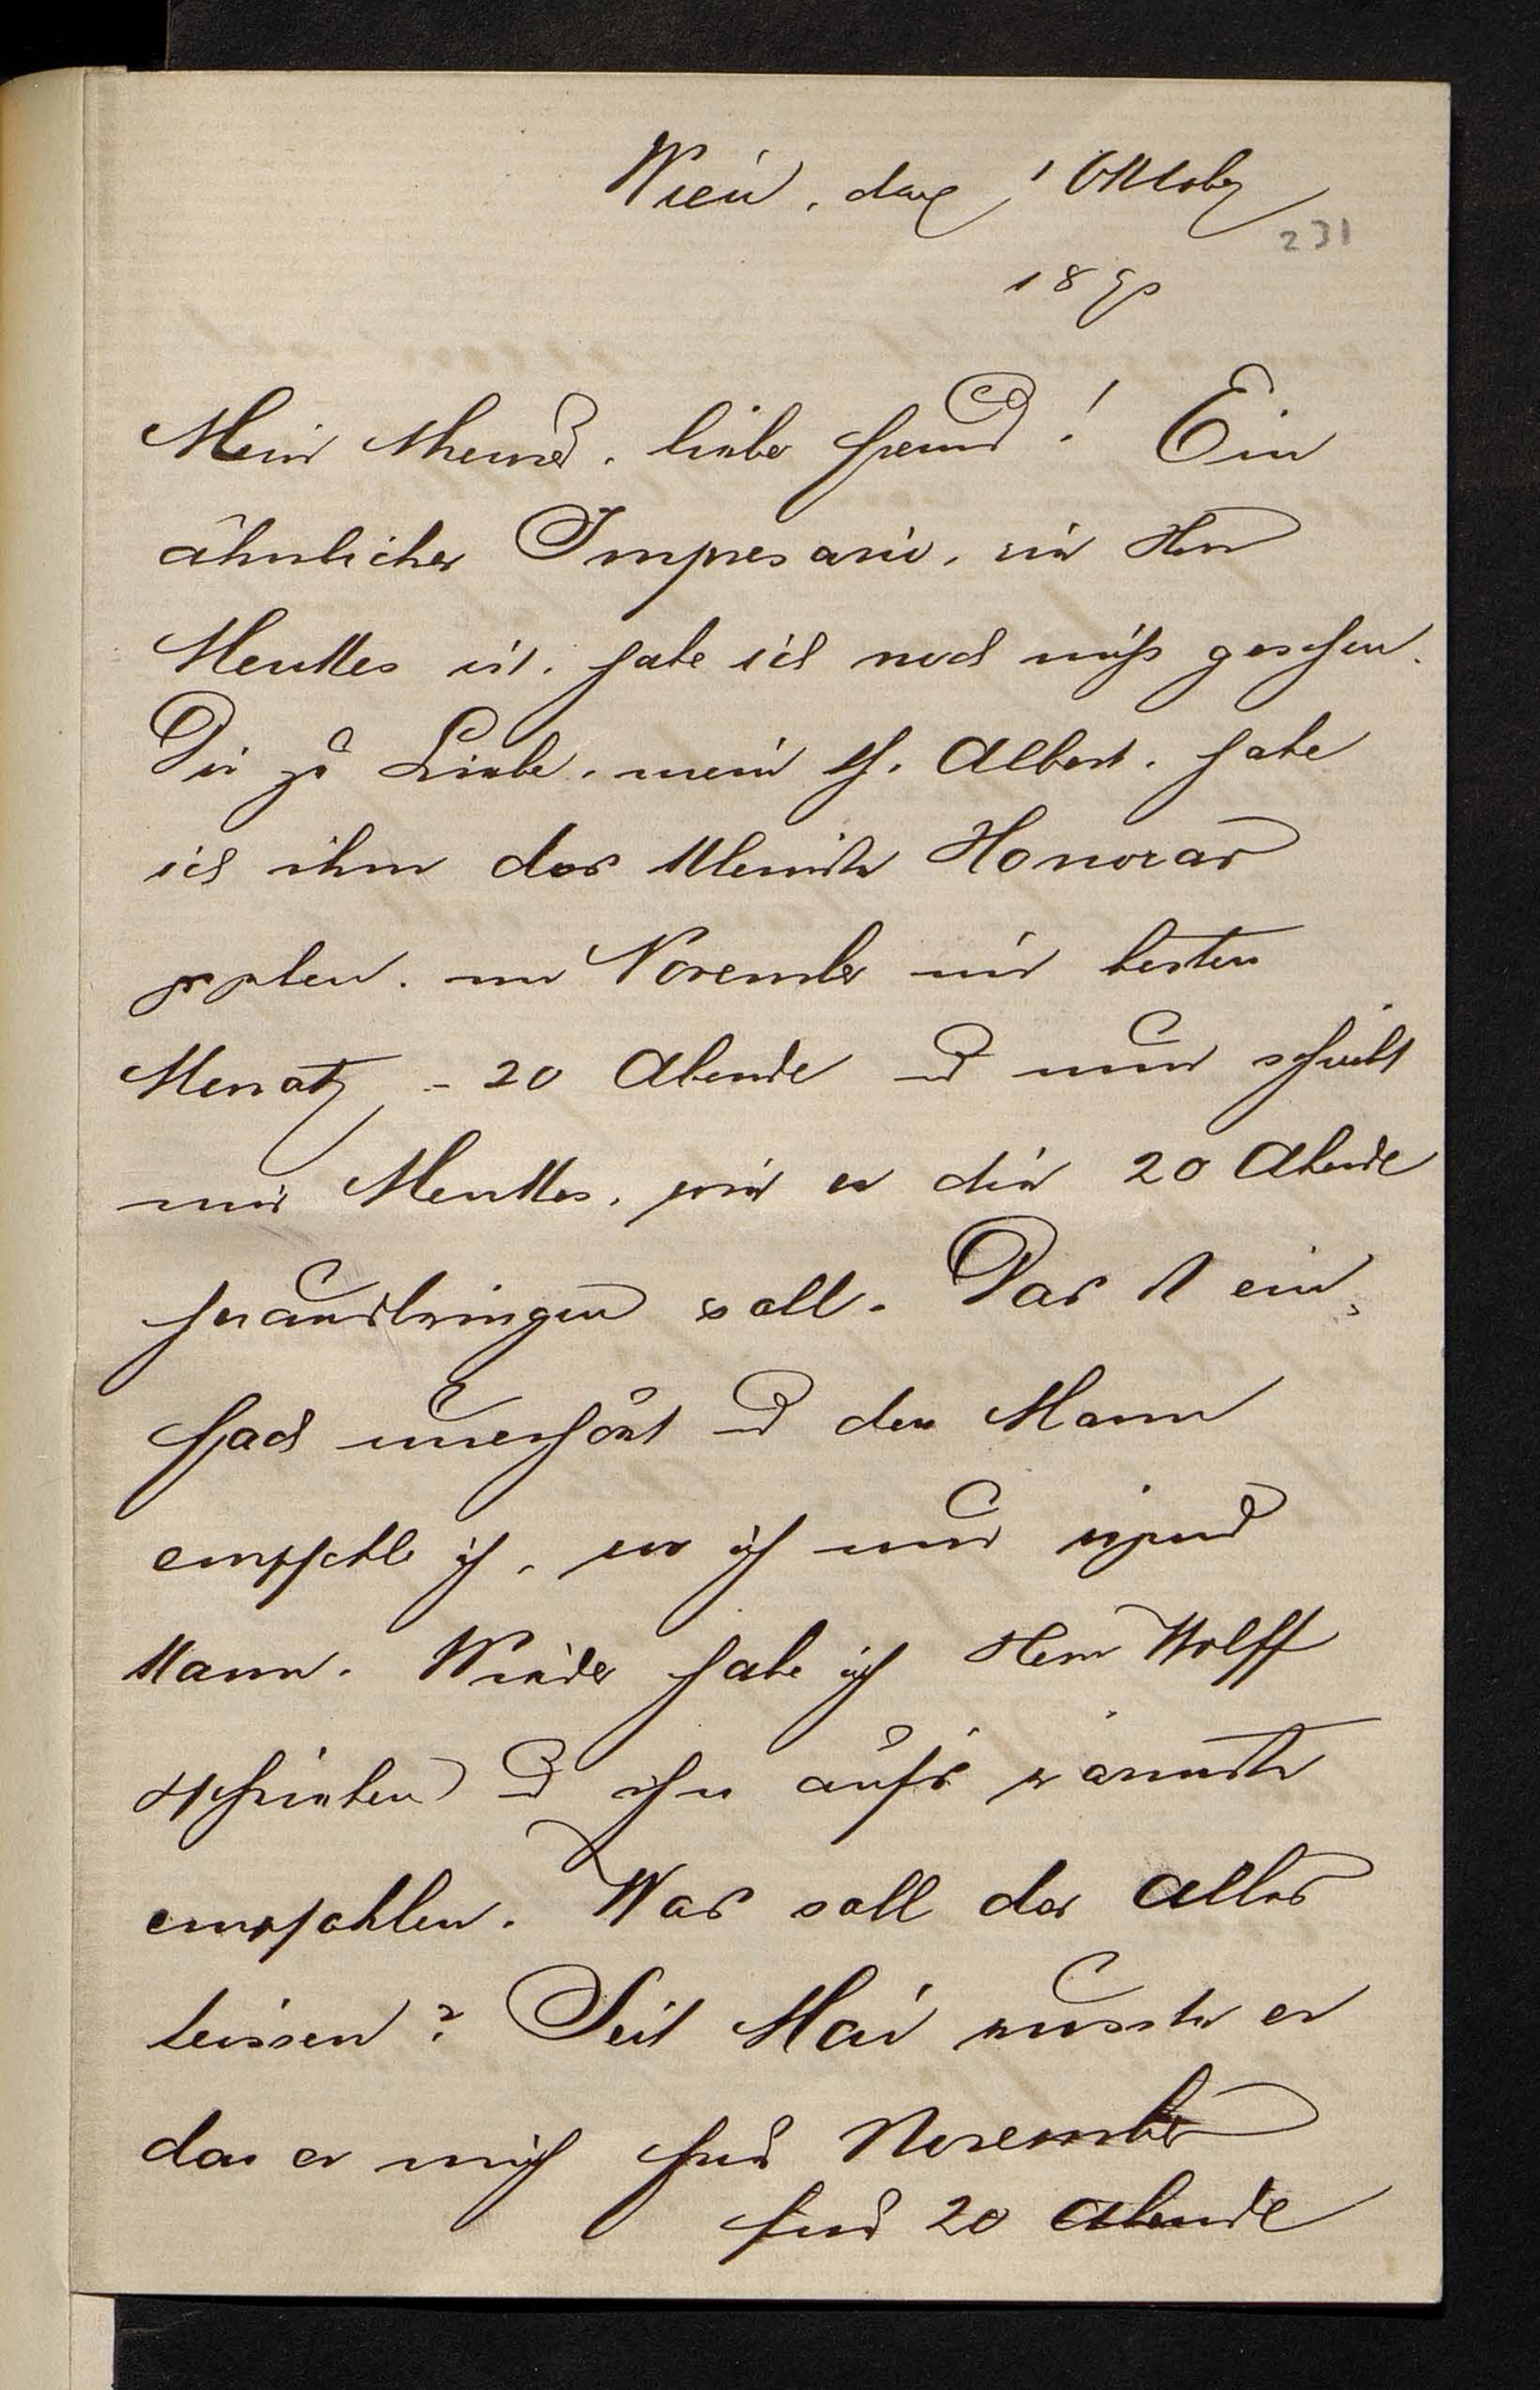 Wien, den 1 Oktober
231
1890
Mein theurer, lieber Freund! Ein
ähnlicher Impresario, wie Herr
Menkes ist, habe ich noch nicht gesehen.
Dir zu Liebe, mein Albert, habe
ich ihm das kleinste Honorar
im November mein besten
Monat, - 20 Abende und nun schreibt
mir Menkes, wie er die 20 Abende
herausbringen soll. Das ist ein-
fach unerhört und den Mann
empfehle ich, wo ich nur irgend
kann. Wieder habe ich Herrn Wolff
geschrieben und ihn aufs wärmste
empfohlen. Was soll das alles
heissen? Seit Mai wusste er
das er mich für November
für 20 Abende